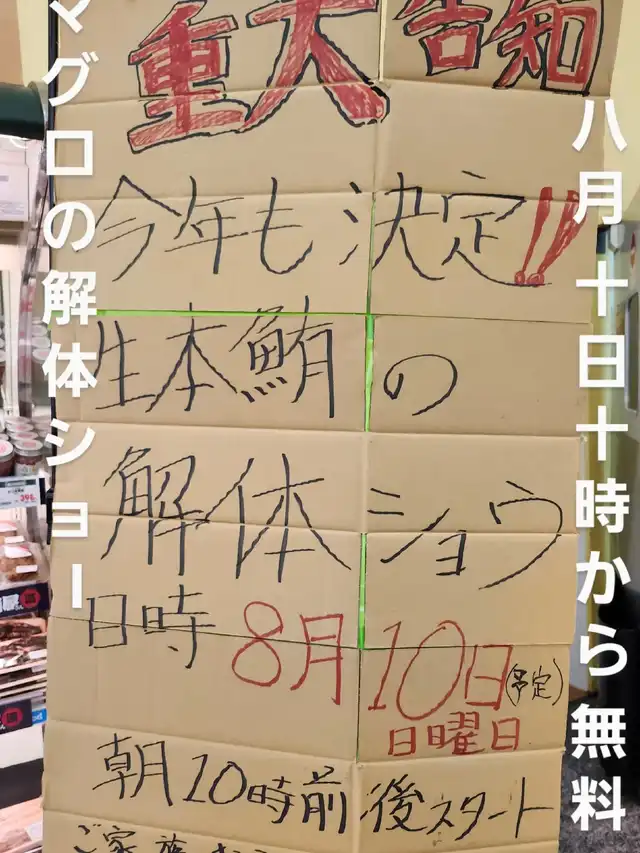 重大告知
今年も決定!!
生本鮪の
解体ショウ
日時 8月10日(予定)
日曜日
朝10時前後スタート
ご家族
八月十日十時から無料
マグロの解体ショー